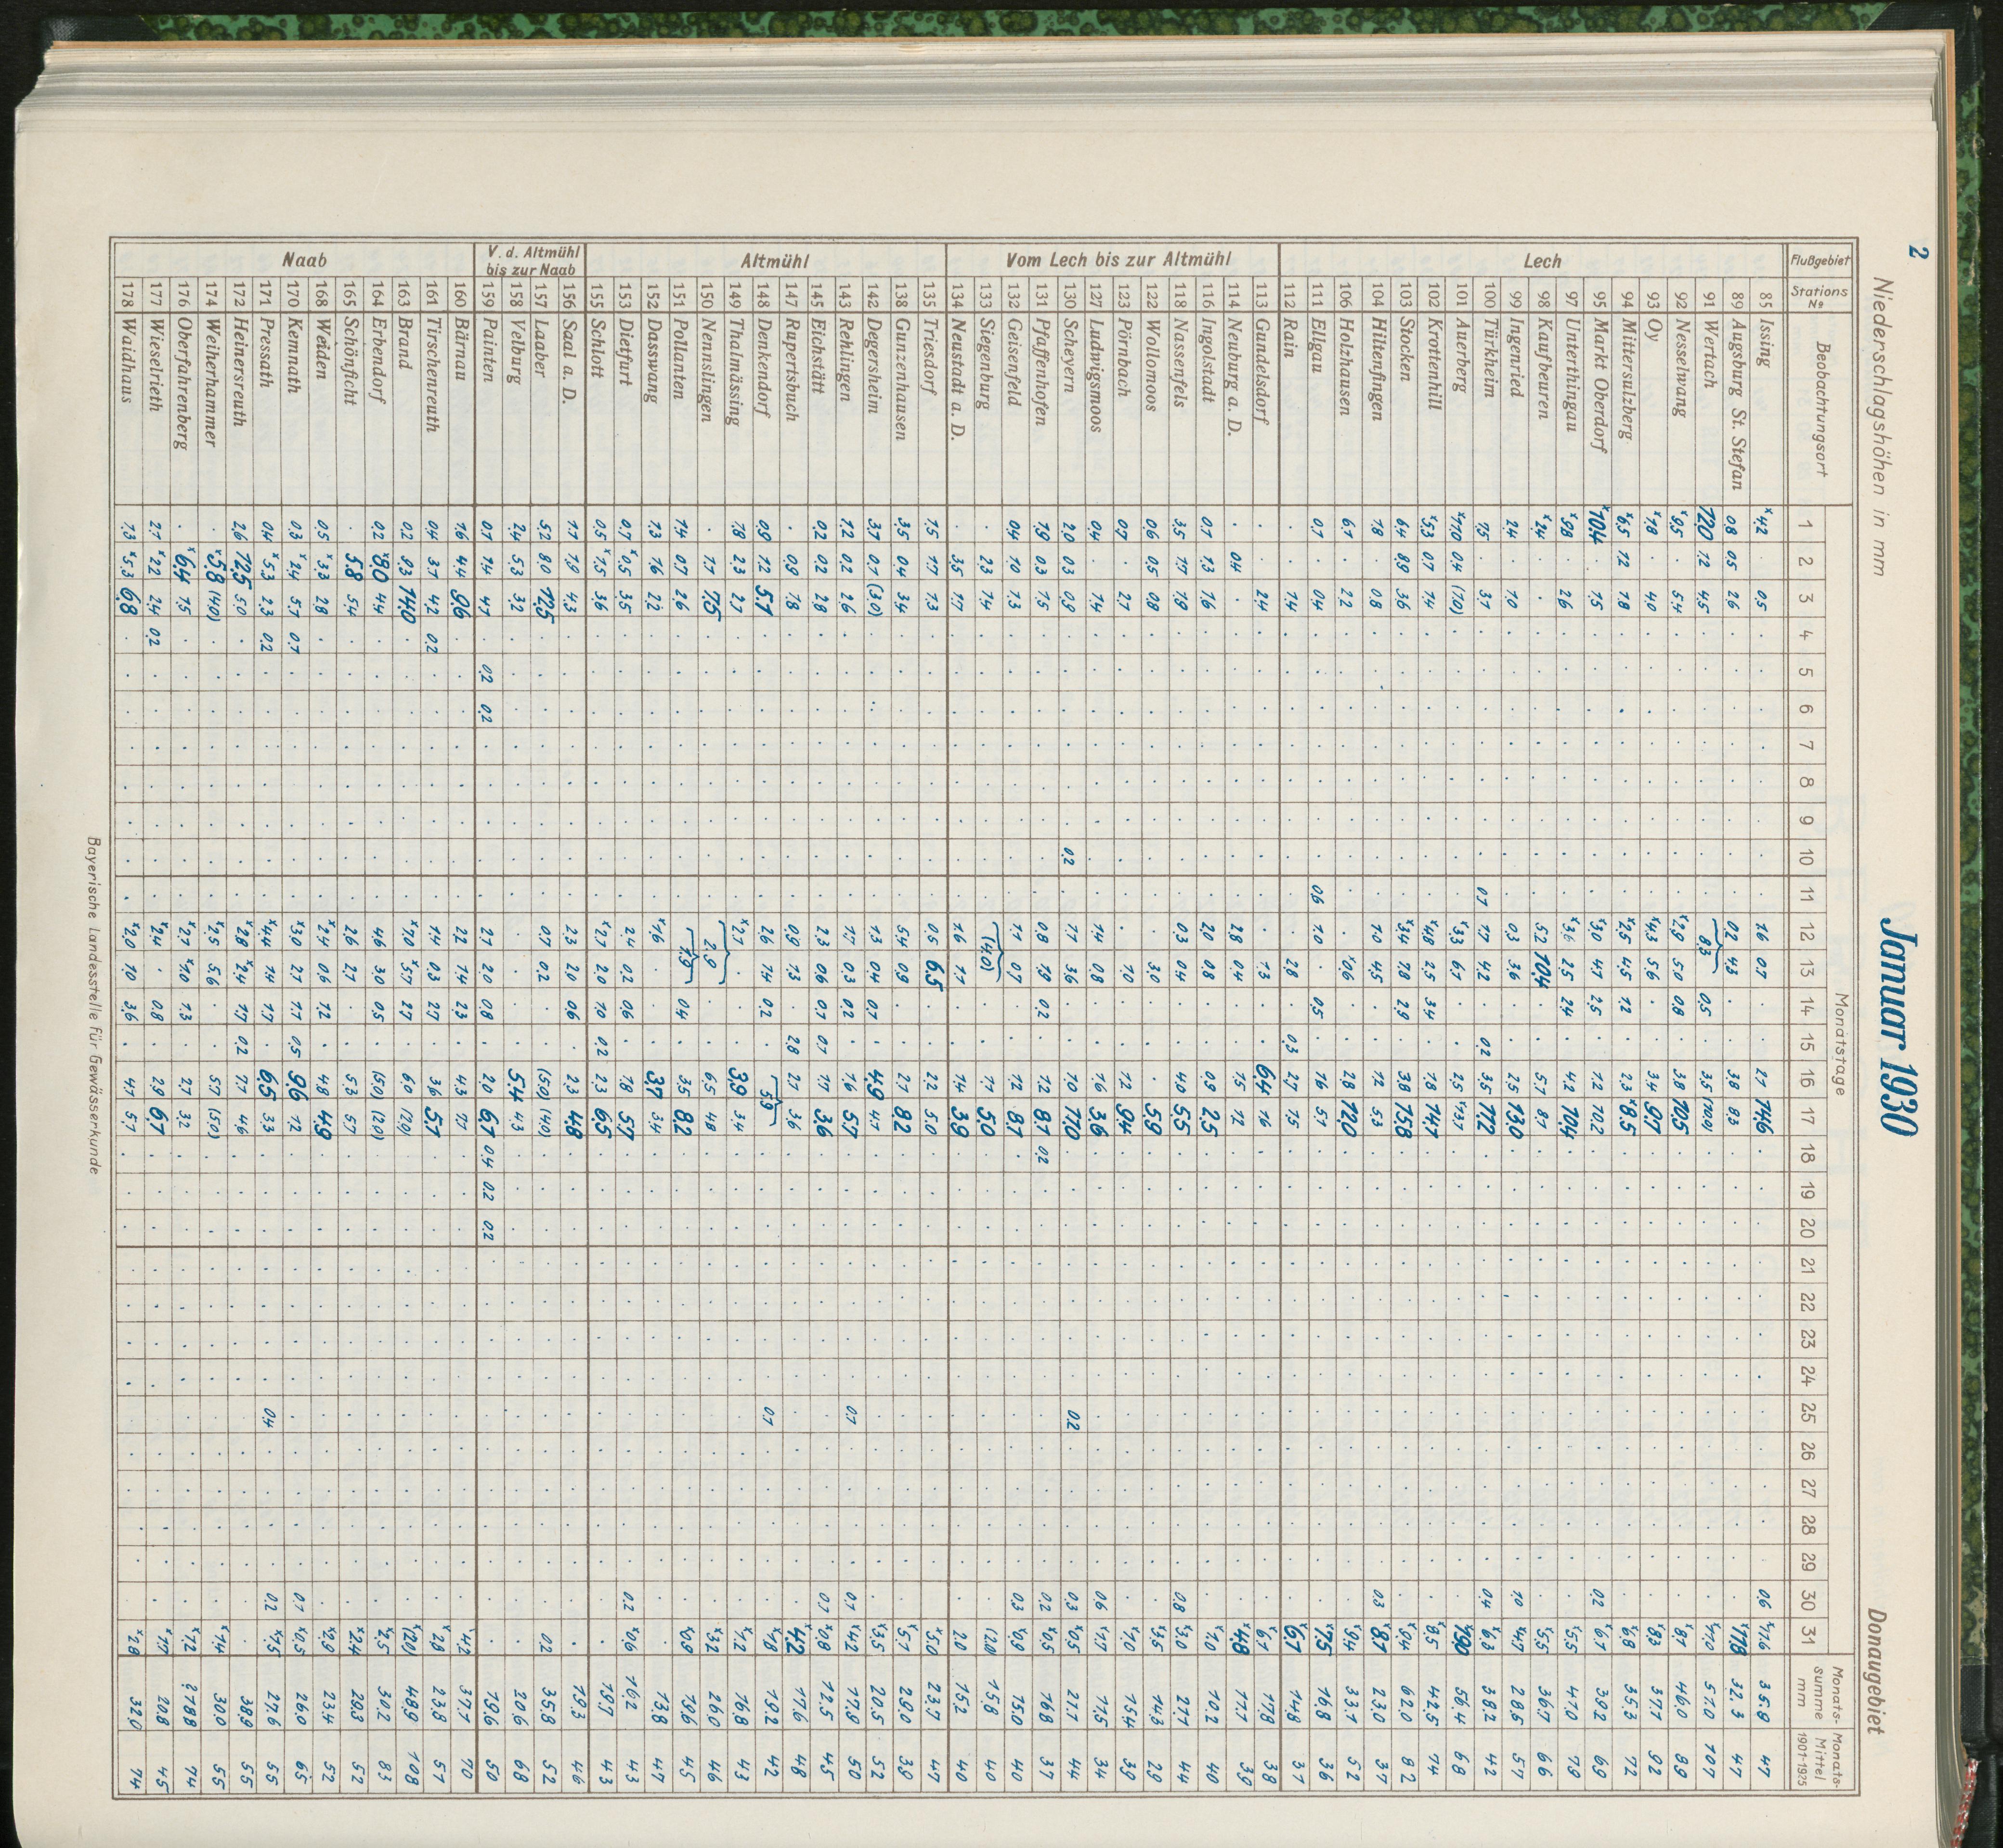 2
Niederschlagshöhen in mm
Januar 1930
Donaugebiet
Flußgebiet Stations № Beobachtungsort Monatstage Monats-summe mm Monats-Mittel 1901-1925
1 2 3 4 5 6 7 8 9 10 11 12 13 14 15 16 17 18 19 20 21 22 23 24 25 26 27 28 29 30 31
Lech
85 Issing x4,2 0,5 1,6 0,7 2,1 14,6 0,6 x11,6 35,9 47
89 Augsburg St. Stefan 0,8 0,5 2,6 0,2 4,3 3,8 8,3 x11,8 32,3 47
91 Wertach 12,0 1,2 4,5 8,3 0,5 3,5 (10,0) x11,0 51,0 107
92 Nesselwang x9,5 5,4 x2,9 5,0 0,8 3,8 10,5 x8,1 46,0 89
93 Oy x1,8 4,0 x4,3 5,6 3,4 9,7 x8,3 37,1 92
94 Mittersulzberg x6,5 1,2 1,8 x2,5 4,5 1,2 2,3 x8,5 x6,8 35,3 72
95 Markt Oberdorf x10,4 1,5 x3,0 4,1 2,5 1,2 10,2 0,2 x6,1 39,2 69
97 Unterthingau x9,8 2,6 x3,6 2,5 2,4 4,2 10,4 x5,5 41,0 79
98 Kaufbeuren x2,4 5,2 10,4 5,1 8,1 x5,5 36,7 66
99 Ingenried 2,4 1,0 0,3 3,6 2,5 13,0 1,0 x4,7 28,5 57
100 Türkheim 1,5 3,1 0,1 1,7 4,2 0,2 3,5 17,2 0,4 x6,3 38,2 42
101 Auerberg x11,0 0,4 (1,0) x3,3 6,1 2,5 x13,1 19,0 56,4 68
102 Krottenhill x5,3 0,7 1,4 x4,8 2,5 3,4 1,8 14,1 x8,5 42,5 74
103 Stocken 6,4 8,9 3,6 x3,4 7,8 2,9 3,8 15,8 x9,4 62,0 82
104 Hiltenfingen 1,8 0,8 1,0 4,5 1,2 5,3 0,3 x8,1 23,0 37
106 Holzhausen 6,1 2,2 x0,6 2,8 12,0 x9,4 33,1 52
111 Ellgau 0,1 0,4 0,6 1,0 0,5 1,6 5,1 x7,5 16,8 36
112 Rain 1,4 2,8 0,3 2,7 1,5 x6,1 14,8 37
Vom Lech bis zur Altmühl
113 Gundelsdorf 2,4 1,3 6,4 1,6 x6,1 17,8 38
114 Neuburg a. D. 0,4 2,8 0,4 1,5 1,2 x4,8 11,1 39
116 Ingolstadt 0,1 1,3 1,6 2,0 0,8 0,9 2,5 x1,0 10,2 40
118 Nassenfels 3,5 1,7 1,9 0,3 0,4 4,0 5,5 0,8 x3,0 21,1 44
122 Wollomoos 0,6 0,5 0,8 3,0 5,9 x3,5 14,3 29
123 Pörnbach 0,7 2,1 1,0 1,2 9,4 x1,0 15,4 39
127 Ludwigsmoos 0,4 1,4 1,4 0,8 1,6 3,6 0,6 x1,7 11,5 34
130 Scheyern 2,0 0,3 0,9 0,2 1,1 3,6 1,0 17,0 0,2 0,3 x0,5 27,1 44
131 Pfaffenhofen 1,9 0,3 1,5 0,8 1,9 0,2 1,2 8,1 0,2 0,2 x0,5 16,8 37
132 Geisenfeld 0,4 1,0 1,3 1,1 0,7 1,2 8,1 0,3 x0,9 15,0 40
133 Siegenburg 2,3 1,4 (4,0) 1,1 5,0 (2,0) 15,8 40
134 Neustadt a. D. 3,5 1,7 1,6 1,1 1,4 3,9 2,0 15,2 40
Altmühl
135 Triesdorf 1,5 1,7 1,3 0,5 6,5 2,2 5,0 x5,0 23,7 47
138 Gunzenhausen 3,5 0,4 3,4 5,4 0,9 2,1 8,2 x5,1 29,0 39
142 Degersheim 3,1 0,1 (3,0) 1,3 0,4 0,1 4,9 4,1 x3,5 20,5 52
143 Rehlingen 1,2 0,2 2,6 1,7 0,3 0,2 1,6 5,7 0,1 0,1 x4,2 17,9 50
145 Eichstätt 0,2 0,2 2,8 2,3 0,6 0,1 0,1 1,7 3,6 0,1 x0,8 12,5 45
147 Rupertsbuch 0,9 1,8 0,9 1,3 2,8 2,1 3,6 x4,2 17,6 48
148 Denkendorf 0,9 1,2 5,1 2,6 1,4 0,2 5,9 0,1 x1,8 19,2 42
149 Thalmässing 1,8 2,3 2,1 x2,1 3,9 3,4 x1,2 16,8 43
150 Nennslingen 1,1 7,5 2,9 6,5 4,8 x3,2 26,0 46
151 Pollanten 1,4 0,7 2,6 1,9 0,4 3,5 8,2 x0,9 19,6 45
152 Dasswang 1,3 1,6 2,2 x1,6 3,7 3,4 13,8 47
153 Dietfurt 0,7 x0,5 3,5 2,4 0,2 0,6 1,8 5,7 0,2 x0,6 16,2 43
155 Schlott 0,5 x1,5 3,6 x2,1 2,0 1,0 0,2 2,3 6,5 19,7 43
V. d. Altmühl bis zur Naab
156 Saal a. D. 1,1 1,9 4,3 2,3 2,0 0,6 2,3 4,8 19,3 46
157 Laaber 5,2 8,0 12,5 0,7 0,2 (5,0) (4,0) 0,2 35,8 52
158 Velburg 2,4 5,3 3,2 5,4 4,3 20,6 68
159 Painten 0,1 1,4 4,1 0,2 0,2 2,1 2,0 0,8 2,0 6,1 0,4 0,2 0,2 19,6 50
Naab
160 Bärnau 1,6 4,4 9,6 2,2 1,4 2,3 4,3 7,1 x4,2 37,1 70
161 Tirschenreuth 0,4 3,1 4,2 0,2 1,4 0,3 2,1 3,6 5,7 x2,8 23,8 57
163 Brand 0,2 0,3 14,0 x7,0 x5,1 2,7 6,0 (2,0) 48,9 108
164 Erbendorf 0,2 x8,0 4,4 4,6 3,0 0,5 (5,0) (2,0) x2,5 30,2 83
165 Schönficht 5,8 5,4 2,6 2,1 5,3 5,7 x2,4 29,3 52
168 Weiden 0,5 x3,3 2,8 x2,4 0,6 1,2 4,8 4,9 x2,9 23,4 52
170 Kemnath 0,3 x2,4 5,1 0,1 x3,0 2,1 1,1 0,5 9,6 1,2 0,1 x0,5 26,0 65
171 Pressath 0,4 x5,3 2,3 0,2 x4,4 1,4 1,7 6,5 3,3 0,4 0,2 x1,5 27,6 55
172 Heinersreuth 2,6 12,5 5,0 x2,8 x2,4 1,7 0,2 7,1 4,6 38,9 55
174 Weiherhammer x5,8 (4,0) x2,5 5,6 5,7 (5,0) x1,4 30,0 55
176 Oberfahrenberg x6,4 1,5 x2,1 x1,0 1,3 2,1 3,2 x1,2 ?18,8 74
177 Wieselrieth 2,1 x2,2 2,4 0,2 x2,4 0,8 2,9 6,1 x1,7 20,8 45
178 Waidhaus 1,3 x5,3 6,8 x2,0 1,0 3,6 4,1 5,1 x2,8 32,0 74
Bayerische Landesstelle für Gewässerkunde